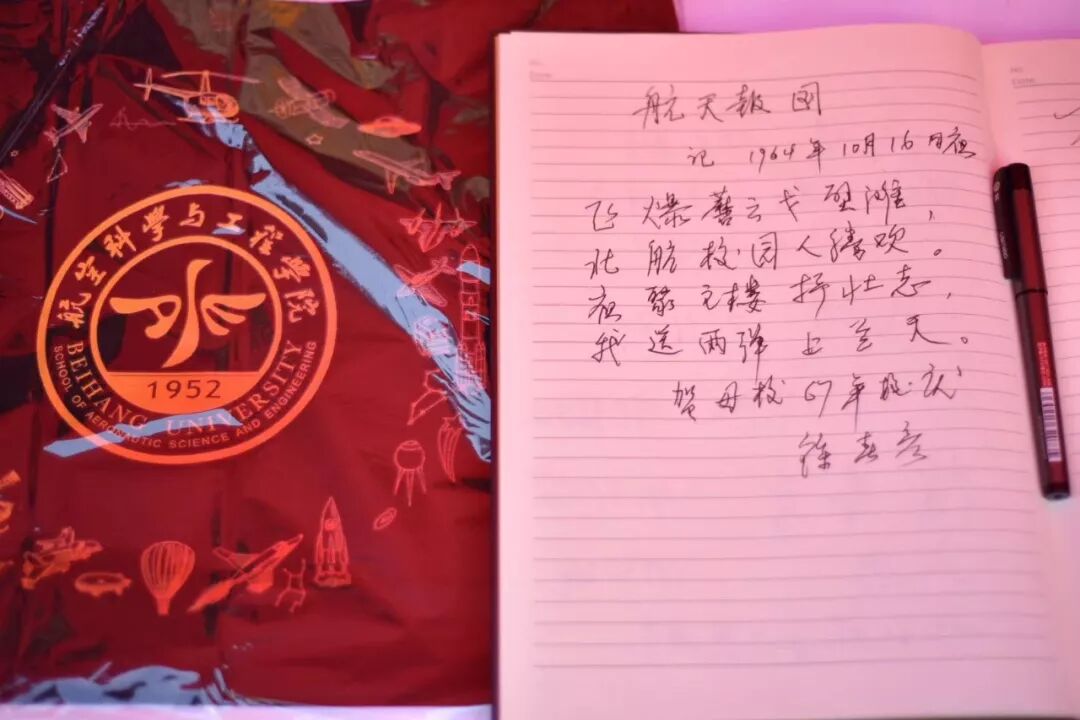 航空科學与工程學院
1952
BEIHANG UNIVERSITY
SCHOOL OF AERONAUTIC SCIENCE AND ENGINEERING
航天报国
记 1964年10月16日夜
飞爆蘑云戈壁滩，
北航校园人腾欢。
夜聚主楼抒壮志，
我送两弹上兰天。
贺母校67年校庆
徐春